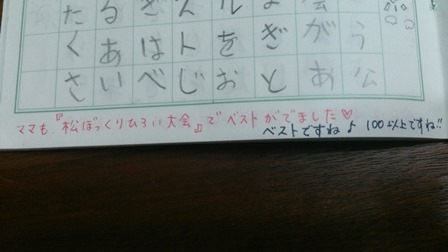 う公
会があ
ぎと
ルをお
トじ
はべ
るあい
たくさ
ママも『松ぼっくりひろい大会』でベストがでました♡
ベストですね♪ 100以上ですね!!